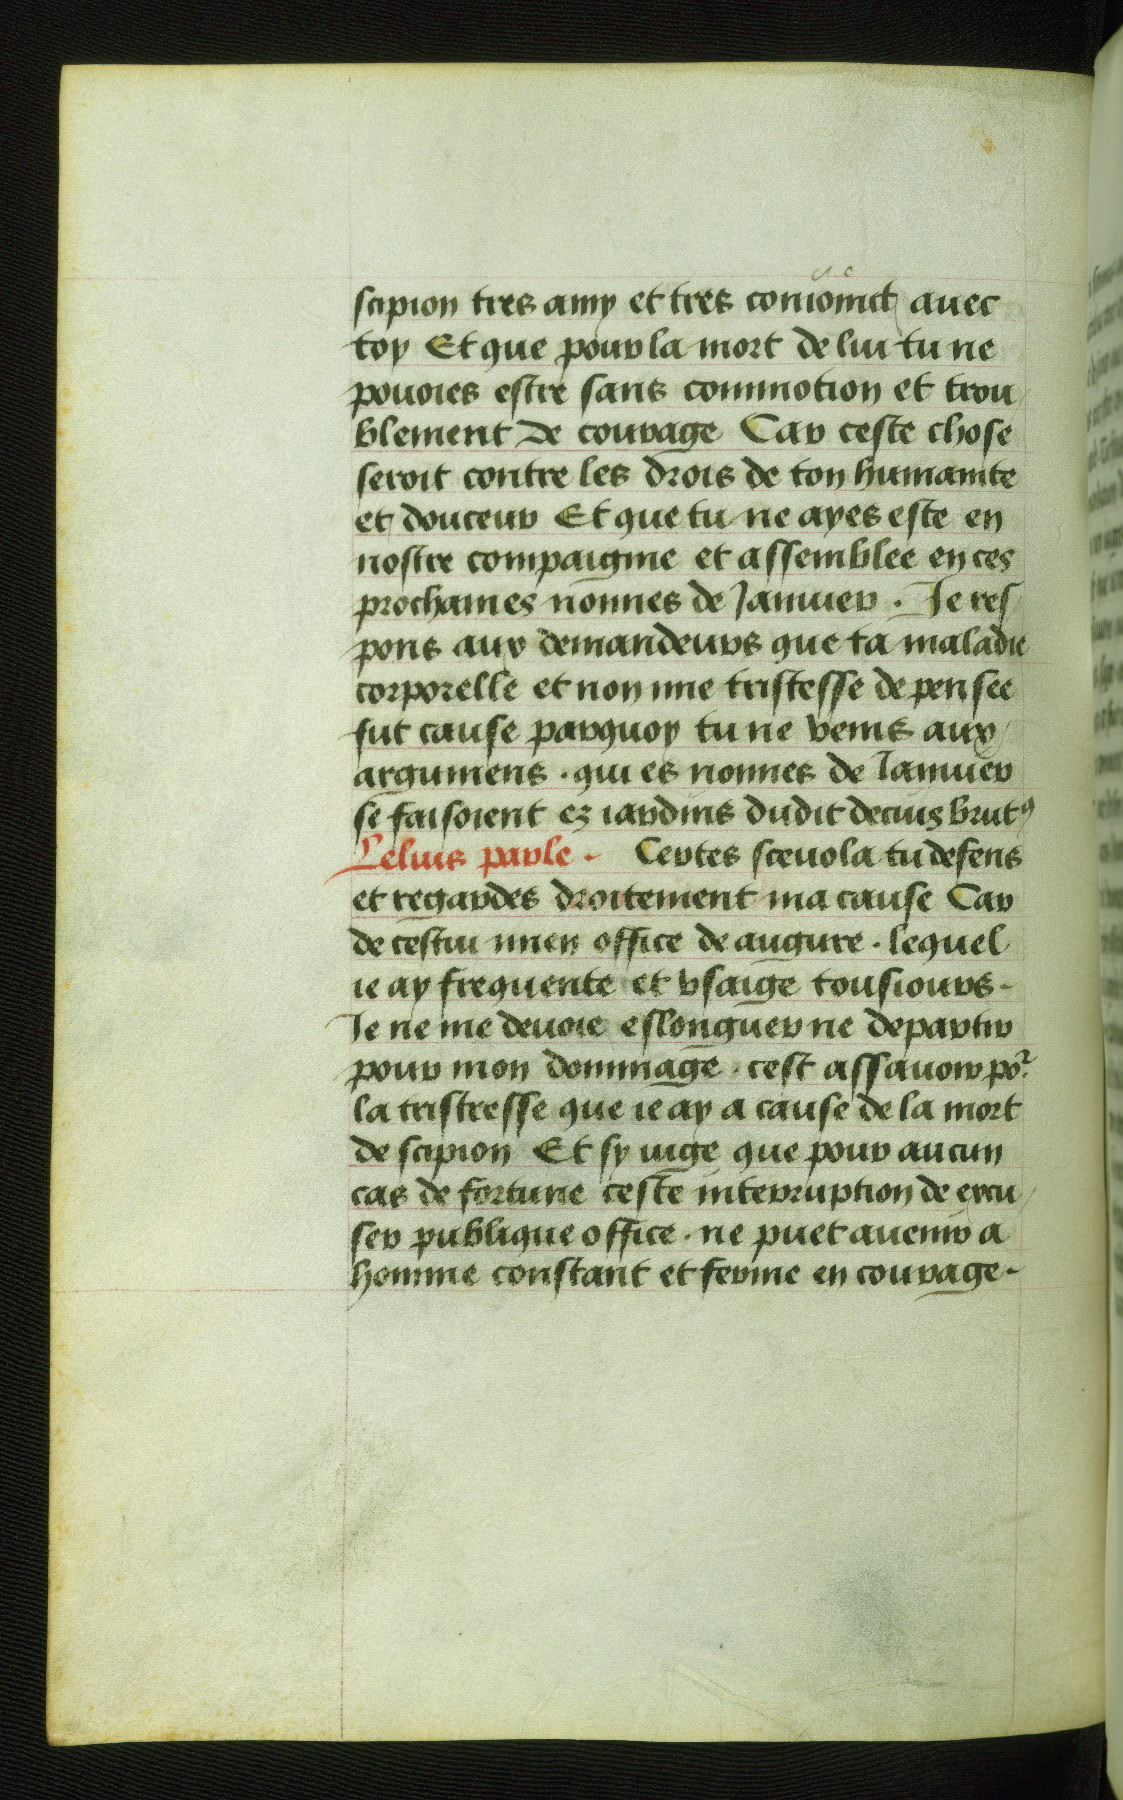 scipion tres amy et tres conioinct avec
toy Et que pour la mort de lui tu ne
pouoies estre sans commotion et trou
blement de courage Car ceste chose
seroit contre les drois de ton humanite
et douceur Et que tu ne ayes este en
nostre compaignie et assemblee en ces
prochaines nonnes de Januier . Je res
pons aux demandeurs que ta maladie
corporelle et non mie tristesse de pensee
fut cause parquoy tu ne venis aux
argumens . qui es nonnes de Januier
se faisoient ez iardins dudit decius brutꝯ
Lelius parle . Certes sceuola tu defens
et regardes droitement ma cause Car
de cestui mien office de augure . lequel
ie ay frequente et vsaige tousiours .
Je ne me deuoie eslonguer ne departir
pour mon dommage . cest assauoir por
la tristresse que ie ay a cause de la mort
de scipion Et sy iuge que pour aucun
cas de fortune ceste interruption de excu
ser publique office . ne puet auenir a
homme constant et ferme en courage .